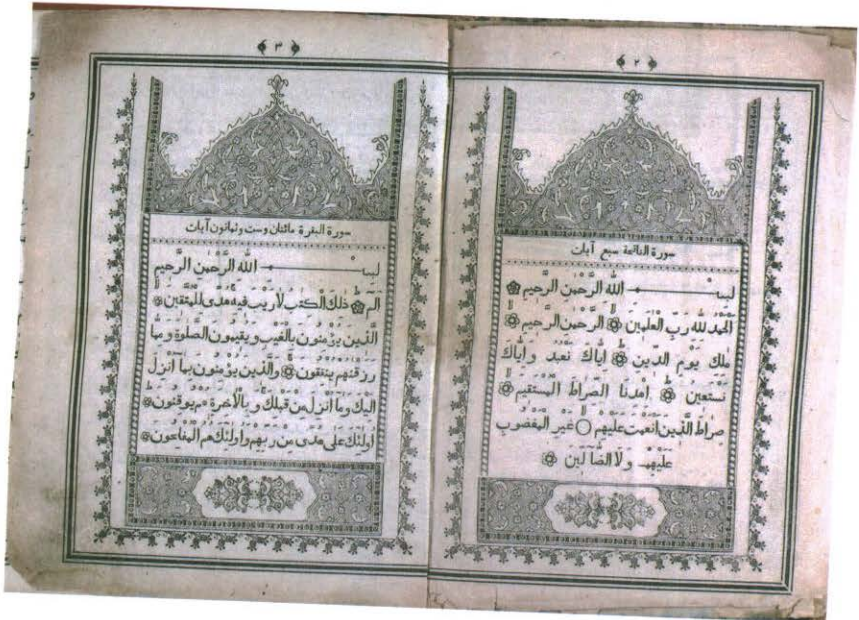 ٢
سورة الفاتحة سبع آيات
بسم الله الرحمن الرحيم
الحمد لله رب العلمين الرحمن الرحيم
ملك يوم الدين اياك نعبد واياك
نستعين اهدنا الصراط المستقيم
صراط الذين انعمت عليهم غير المغضوب
عليهم ولا الضالين
٣
سورة البقرة مائتان وست وثمانون آيات
بسم الله الرحمن الرحيم
الم ذلك الكتب لا ريب فيه هدى للمتقين
الذين يؤمنون بالغيب ويقيمون الصلوة ومما
رزقنهم ينفقون والذين يؤمنون بما انزل
اليك وما انزل من قبلك وبالآخرة هم يوقنون
اولئك على هدى من ربهم واولئك هم المفلحون